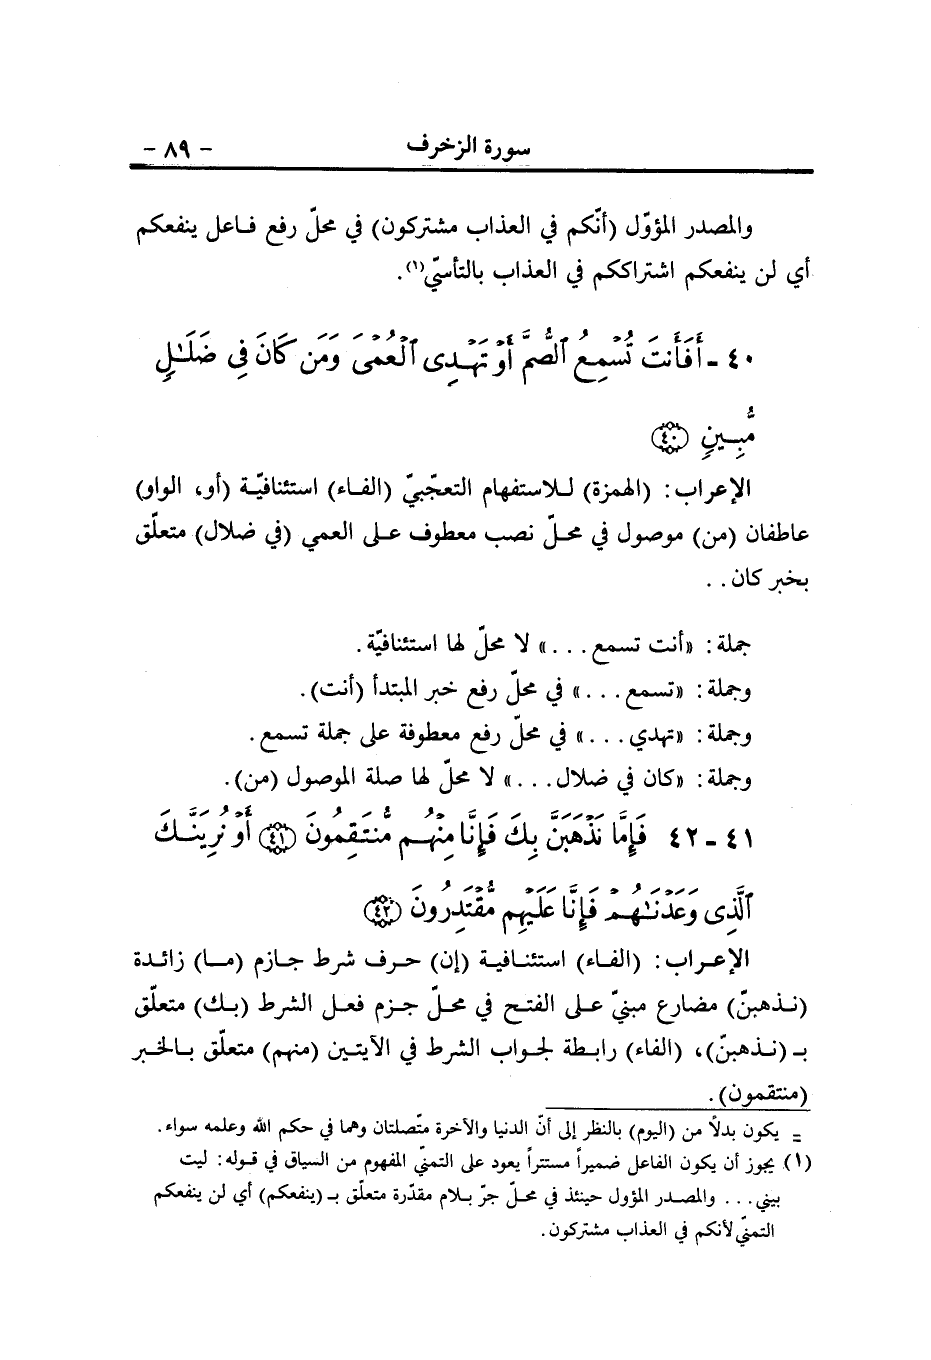 سورة الزخرف - ٨٩ -
والمصدر المؤوّل (أنّكم في العذاب مشتركون) في محلّ رفع فاعل ينفعكم
أي لن ينفعكم اشتراككم في العذاب بالتأسّي(١).
٤٠ - أَفَأَنتَ تُسْمِعُ ٱلصُّمَّ أَوْ تَهْدِى ٱلْعُمْىَ وَمَن كَانَ فِى ضَلَـٰلٍ
مُّبِينٍ ﴿٤٠﴾
الإعراب: (الهمزة) للاستفهام التعجّبيّ (الفاء) استئنافيّة (أو، الواو)
عاطفان (من) موصول في محلّ نصب معطوف على العمي (في ضلال) متعلّق
بخبر كان..
جملة: «أنت تسمع...» لا محلّ لها استئنافيّة.
وجملة: «تسمع...» في محلّ رفع خبر المبتدأ (أنت).
وجملة: «تهدي...» في محلّ رفع معطوفة على جملة تسمع.
وجملة: «كان في ضلال...» لا محلّ لها صلة الموصول (من).
٤١ - ٤٢ فَإِمَّا نَذْهَبَنَّ بِكَ فَإِنَّا مِنْهُم مُّنتَقِمُونَ ﴿٤١﴾ أَوْ نُرِيَنَّكَ
ٱلَّذِى وَعَدْنَـٰهُمْ فَإِنَّا عَلَيْهِم مُّقْتَدِرُونَ ﴿٤٢﴾
الإعراب: (الفاء) استئنافية (إن) حرف شرط جازم (ما) زائدة
(نذهبنّ) مضارع مبنيّ على الفتح في محلّ جزم فعل الشرط (بك) متعلّق
بـ (نذهبنّ)، (الفاء) رابطة لجواب الشرط في الآيتين (منهم) متعلّق بالخبر
(منتقمون).
= يكون بدلاً من (اليوم) بالنظر إلى أنّ الدنيا والآخرة متّصلتان وهما في حكم الله وعلمه سواء.
(١) يجوز أن يكون الفاعل ضميراً مستتراً يعود على التمنيّ المفهوم من السياق في قوله: ليت
بيني... والمصدر المؤول حينئذ في محلّ جرّ بلام مقدّرة متعلّق بـ (ينفعكم) أي لن ينفعكم
التمنيّ لأنكم في العذاب مشتركون.